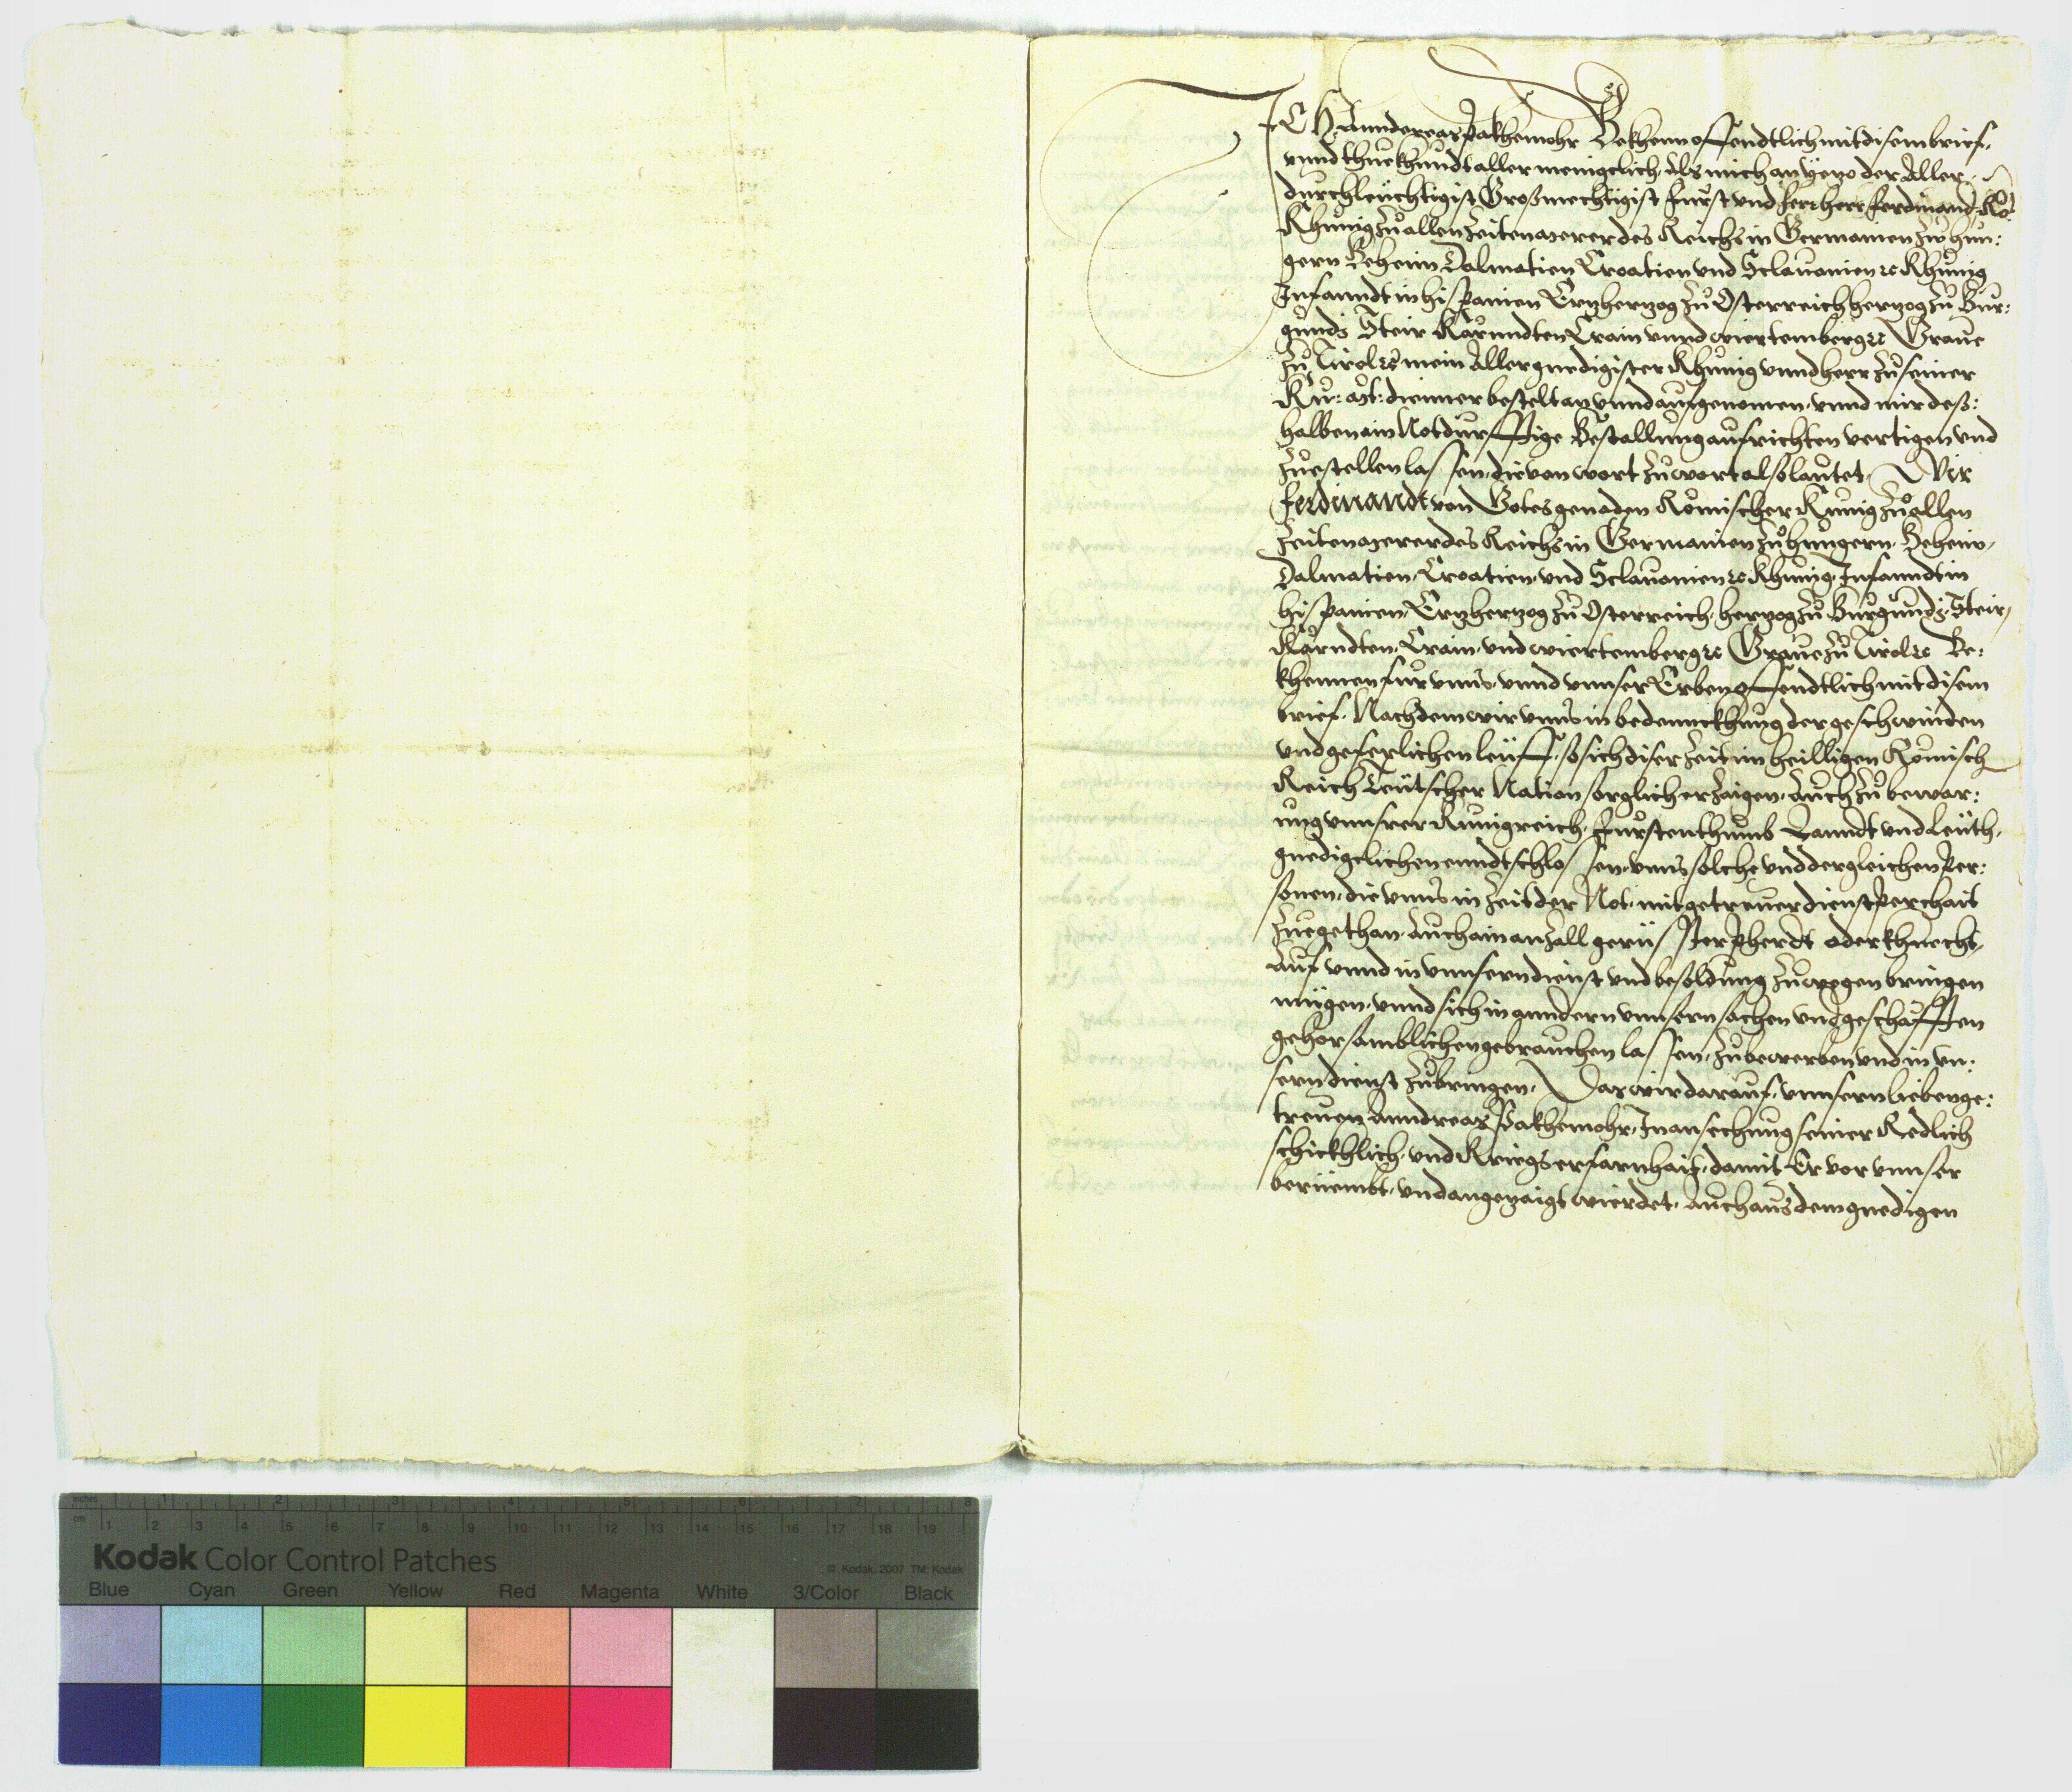 ICH Anndereas Pakhemohr Bekhenn offenndtlich mit disem brief,
vnnd thue khundt aller menigclich, Als mich an heuo der Aller-
durchleüchtigist Großmechtigist Fürst vnd herr herr Ferdinand Rö:
Khunig zu allen Zeiten merer des Reichs in Germanien zw hun:
gern Beheim Dalmatien Croatien vnd Sclauonien &c Khunig
Infanndt in hispanien Ertzherzog zu Osterreich herzog zu Bur:
gundj Steir Kärnndten Crain vnnd wiertemberg &c Graue
zu Tirol &c mein Allergnedigister Khunig vnnd herr zu seiner
Ku: Mt: diennner bestelt an vnnd aufgenomen, vnnd mir deß:
halben ain Notdurfftige Bestallung aufrichten vertigen vnd
zuestellen lassen, die von wort zu wort also lautet, Wir
Ferdinandt von Gotes genaden Römischer Kunig zu allen
Zeiten merer des Reichs in Germanien zu hungern, Beheim,
Dalmatien, Croatien, vnd Sclauonien &c Khunig, Infanndt in
hispanien, Ertzherzog zu Osterreich, herzog zu Burgundj, Steir,
Kärndten, Crain, vnd wiertemberg &c Graue zu Tirol &c Be:
khennen für vnns, vnnd vnnser Erben offenndtlich mit disem
brief, Nachdem wir vnns in bedennckhung der geschwinden
vnd geferlichen leüff, so sich diser Zeit im heilligen Römisch
Reich Teütscher Nation sorglich erzaigen, Auch zu bewar:
ung vnnsrer Kunigreich, Fürstenthumb Lanndt vnd Leüth,
gnedigelichen enndtschlossen, vnns solche vnd dergleichen Per:
sonen, die vnns in Zeit der Not, mit getreuer dienstperchait
zuegethan, Auch ain anzall gerüsster Pherdt oder khnecht,
Auf vnnd in vnnsern dienst vnd besoldung zuwegen bringen
mügen, vnnd sich in anndern vnnsern sachen vnd geschäfften
gehorsamblichen gebrauchen lassen, zubewerben vnd in vn:
sern dienst zubringen, Das wir darauf, vnnsern lieben ge:
treuen Anndreas Pakhemohr, In ansechung seiner Redlich
schickhlich, vnd Kriegserfarnhait, damit Er vor vnnser
berüembt, vnd angezaigt wierdet, Auch aus dem gnedigen